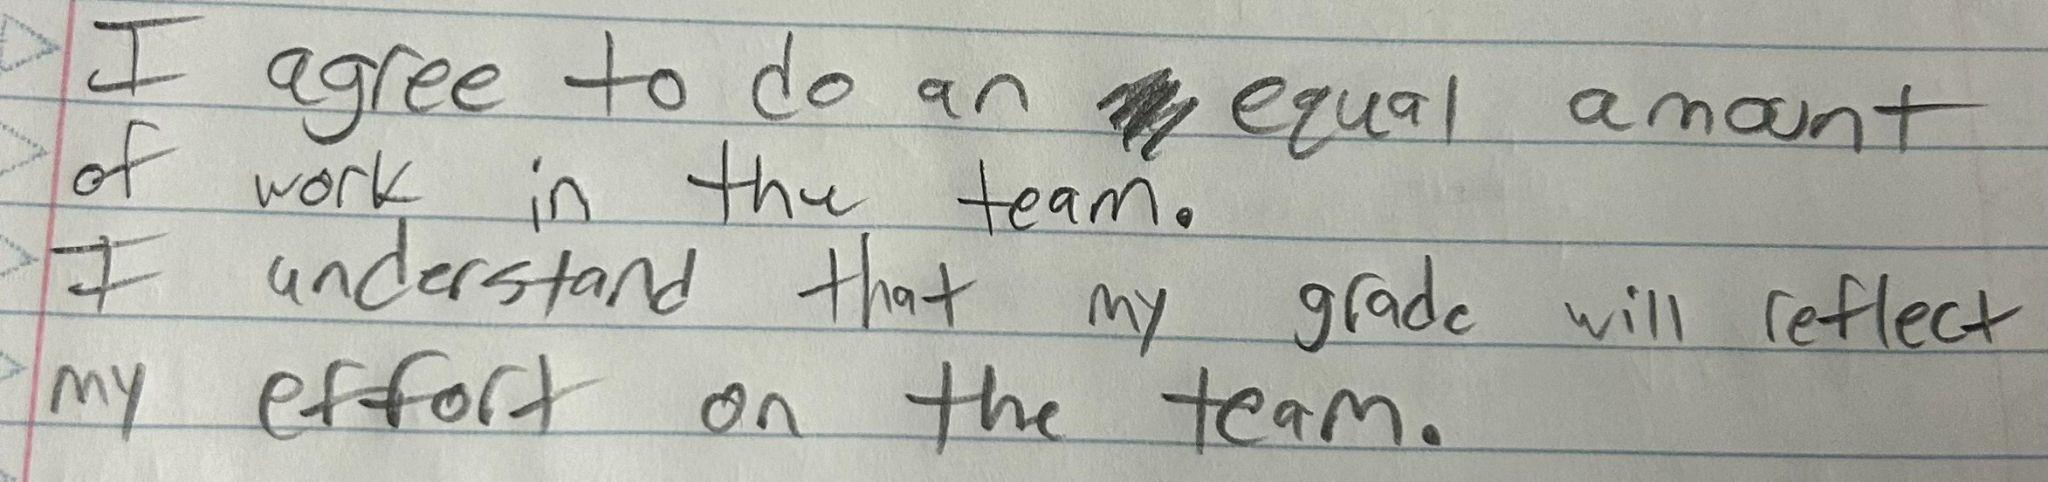 I agree to do an equal amount
of work in the team.
I understand that my grade will reflect
my effort on the team.